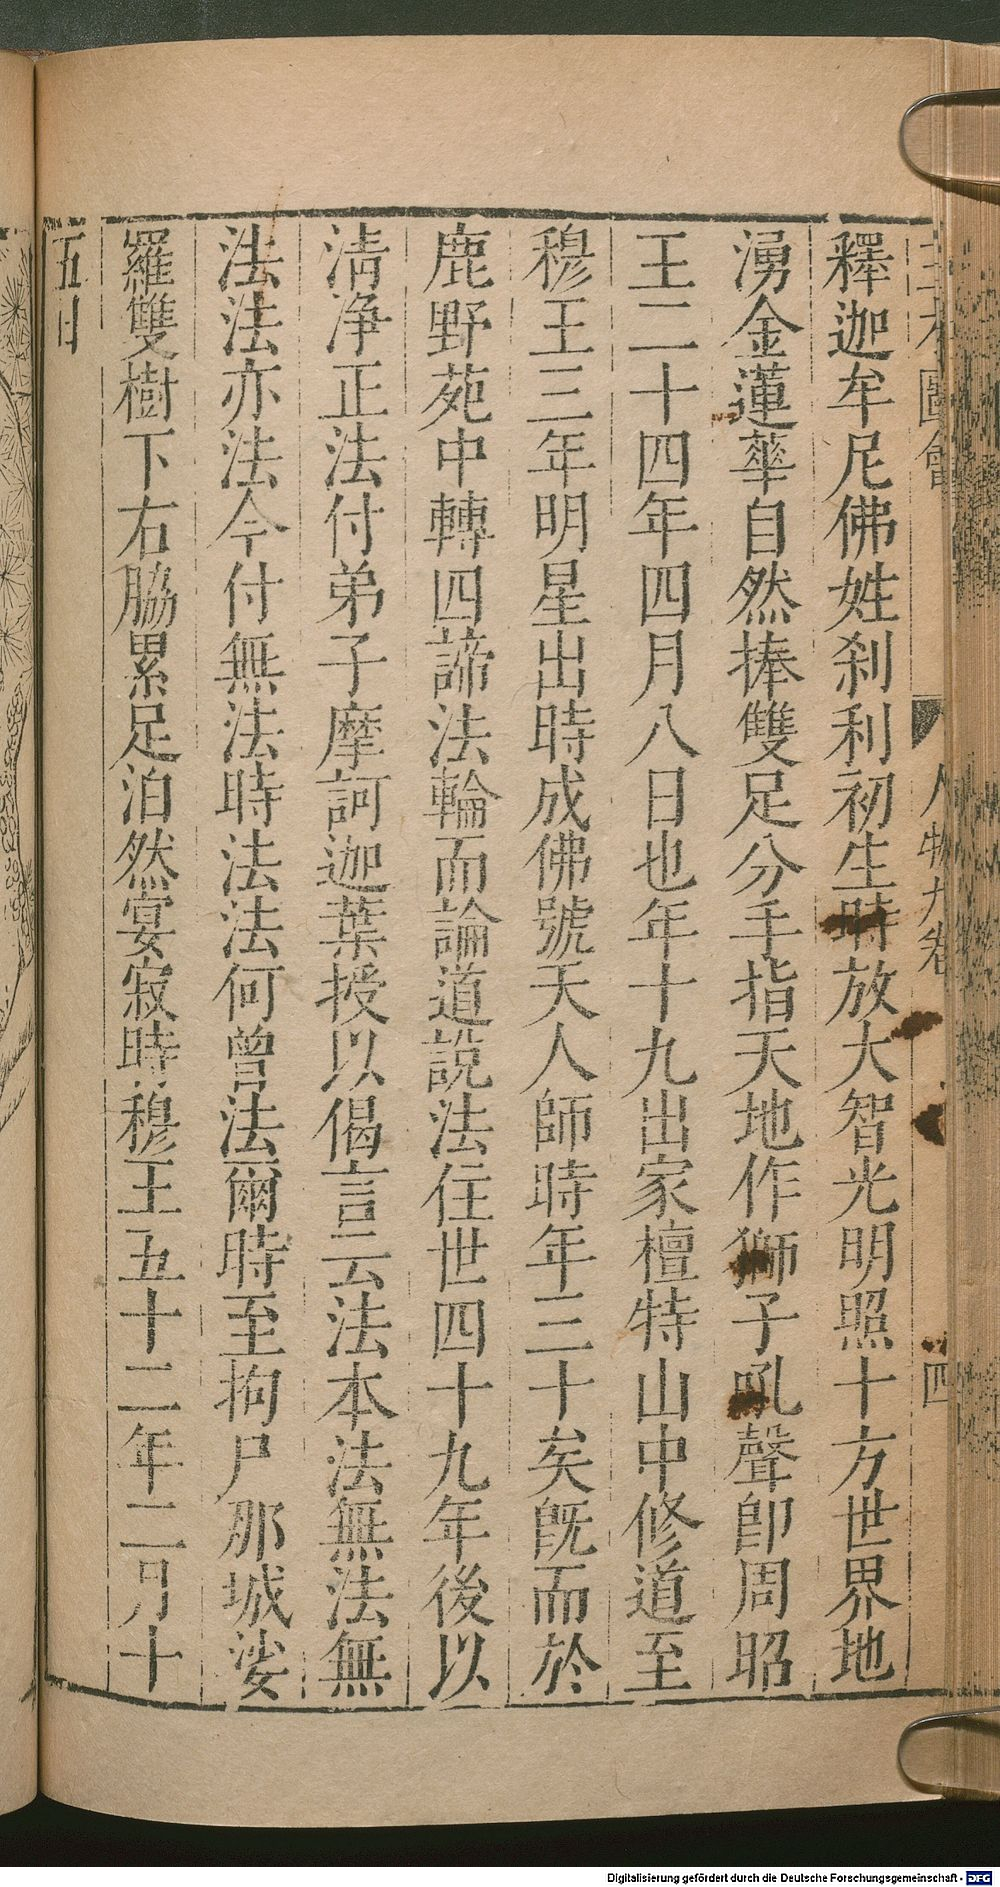 三才圖會 人物九卷 四
釋迦牟尼佛姓刹利初生時放大智光明照十方世界地
湧金蓮華自然捧雙足分手指天地作獅子吼聲卽周昭
王二十四年四月八日也年十九出家檀特山中修道至
穆王三年明星出時成佛號天人師時年三十矣旣而於
鹿野苑中轉四諦法輪而論道說法住世四十九年後以
淸淨正法付弟子摩訶迦葉授以偈言云法本法無法無
法法亦法今付無法時法法何曾法爾時至拘尸那城娑
羅雙樹下右脇累足泊然宴寂時穆王五十二年二月十
五日
Digitalisierung gefördert durch die Deutsche Forschungsgemeinschaft - DFG